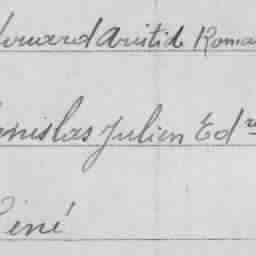 douard Aristide Roma
anislas Julien Edre
René